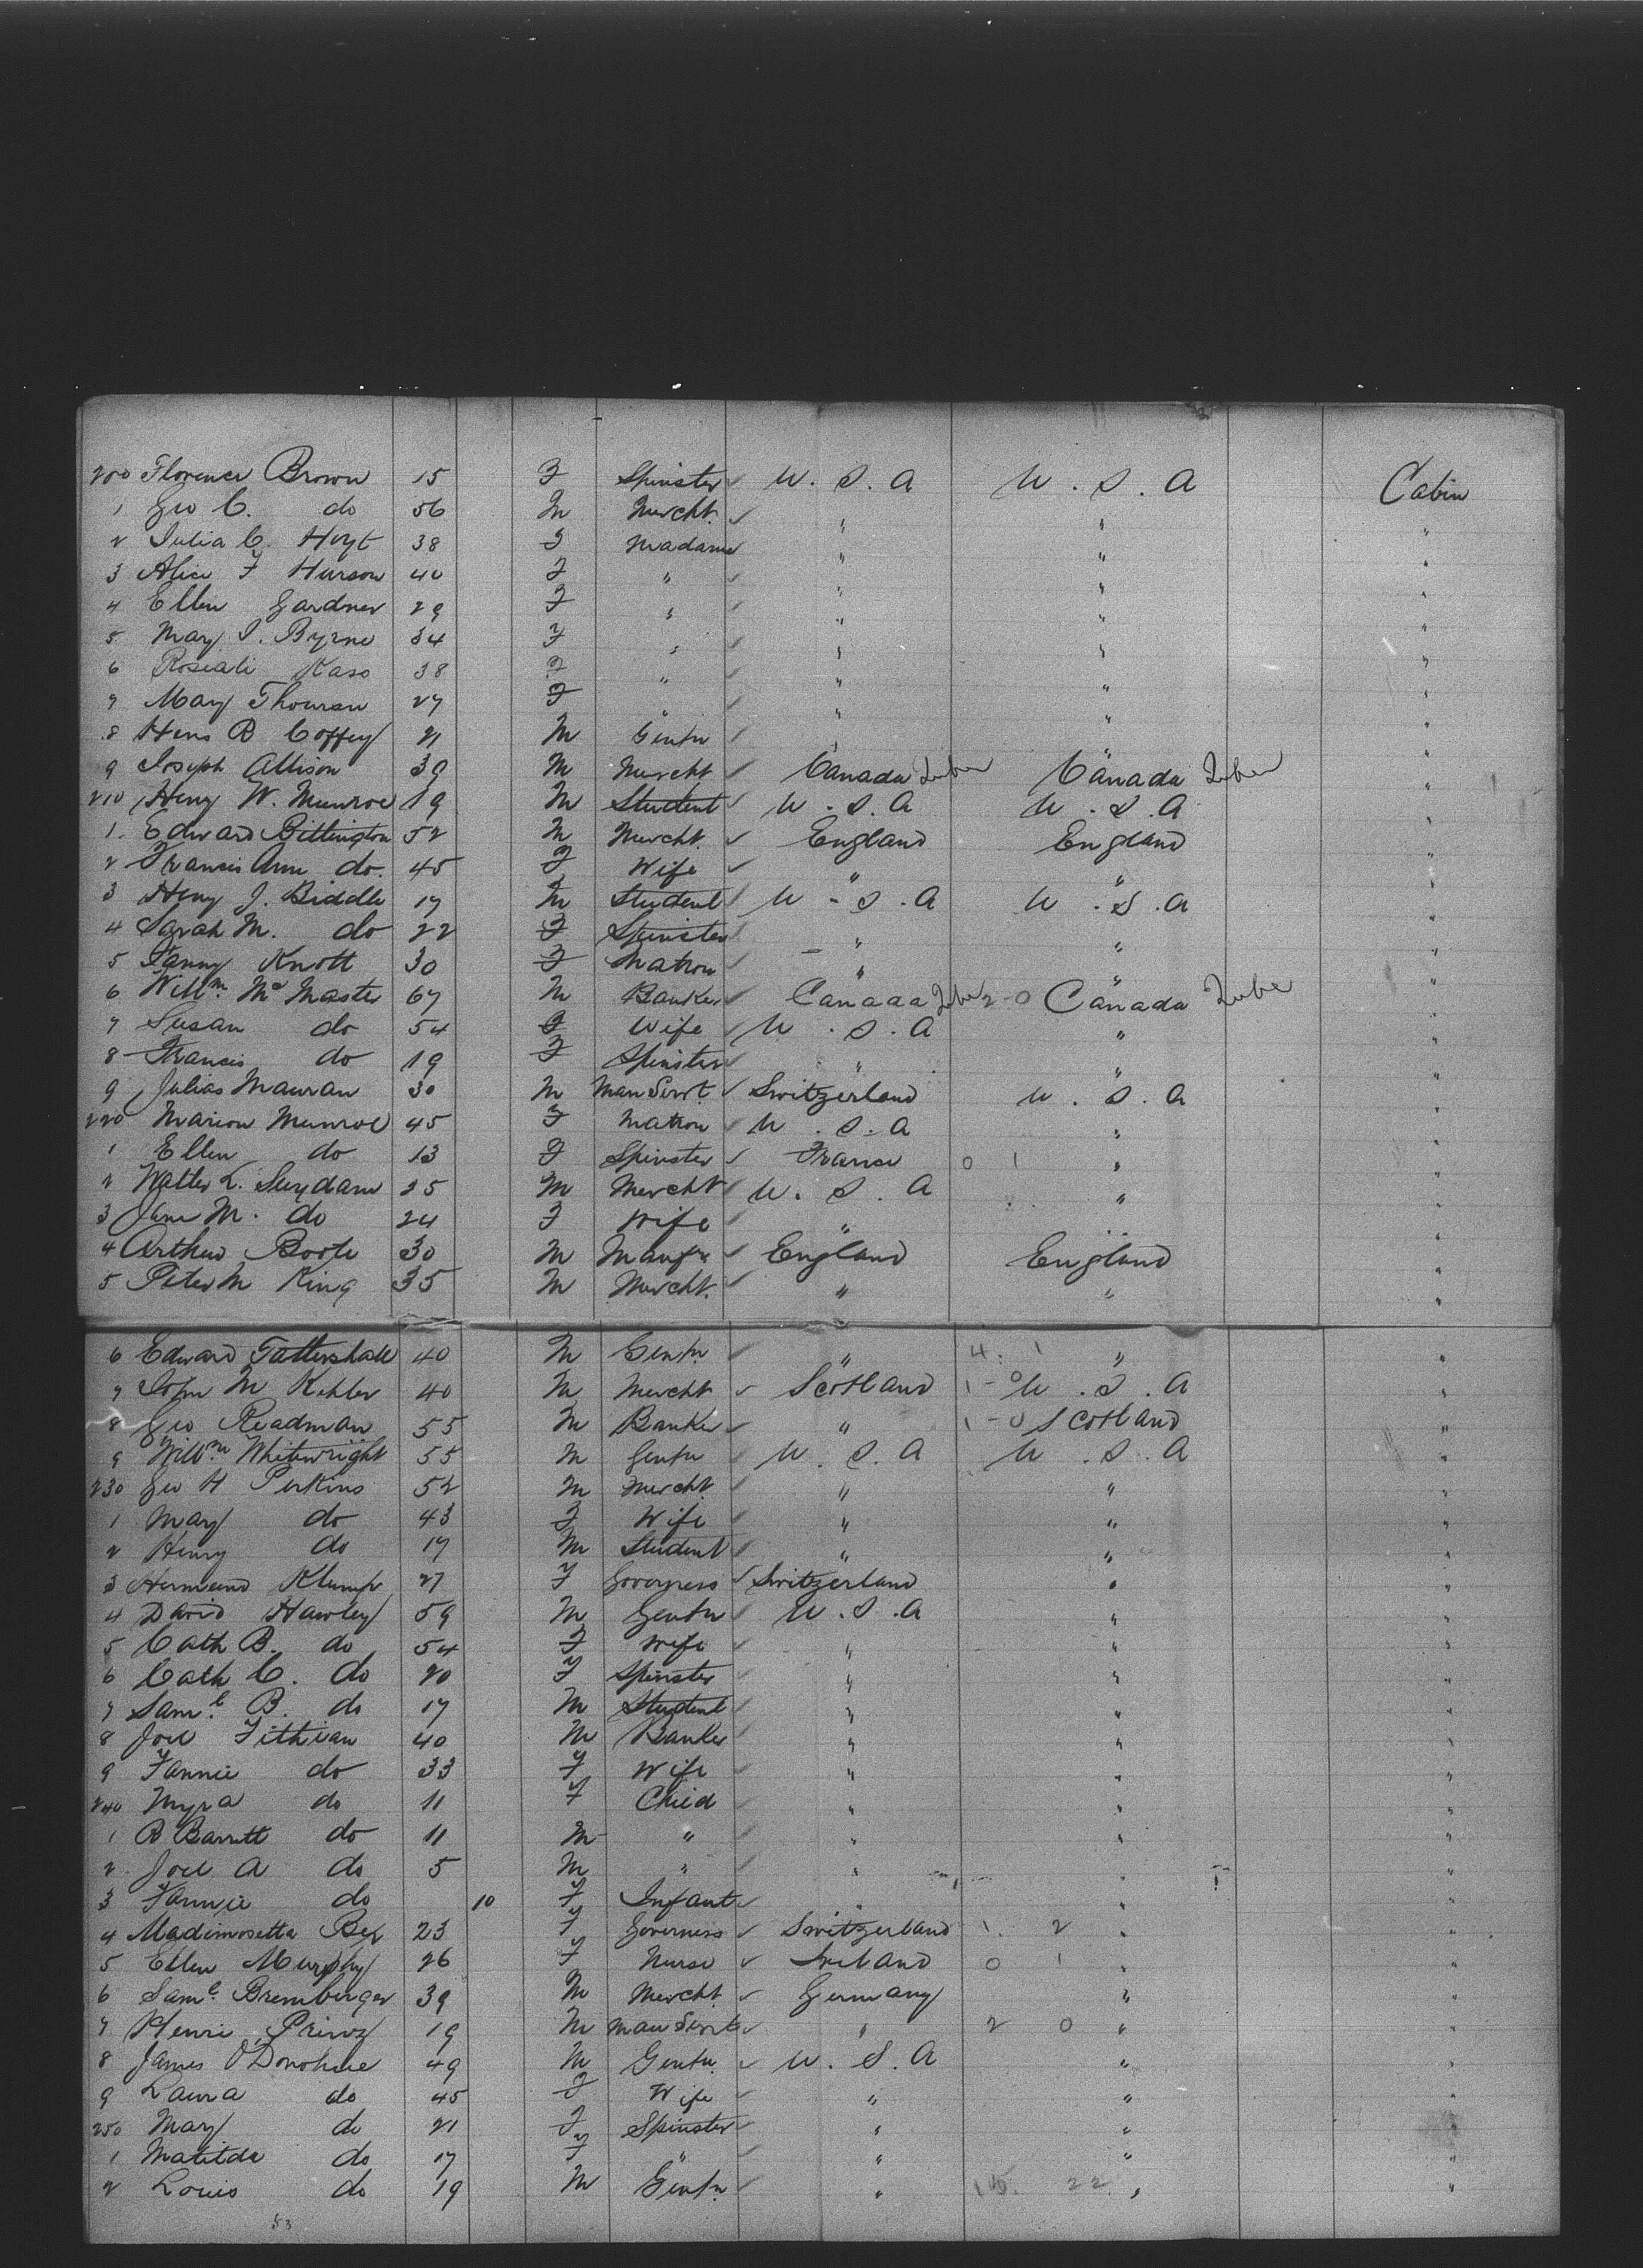 200 Florence Brown 15 F Spinster U.S.A U.S.A Cabin
1 Geo C. do 56 M Mercht. " " "
2 Julia C. Hoyt 38 F Madame " " "
3 Alice F 40 F " " " "
4 Ellen Gardner 29 F " " " "
5 Mary I. Byrne 34 F " " " "
6 38 F " " " "
7 Mary 27 F " " " "
8 B Coffey 21 M Gentn " " "
9 Joseph Allison 39 M Mercht Canada Canada "
210 Heny W. Munroe 19 M Student U.S.A U.S.A "
1. Edward Bittington 52 M Mercht. England England "
2 Francis Ann do. 45 F Wife " " "
3 Heny J. Biddle 17 M Student U.S.A U.S.A "
4 Sarah M. do 22 F Spinster " " "
5 Fanny Knott 30 F Matron " " "
6 Willm. Mc Master 67 M Banker Canada 2-0 Canada "
7 Susan do 54 F Wife U.S.A " "
8 Francis do 19 F Spinster " " "
9 Julias Mauran 30 M Man Servt. Switzerland U.S.A "
220 Marion Munroe 45 F Matron U.S.A " "
1 Ellen do 13 F Spinster France 0 1 " "
2 Walter L. Suydam 25 M Mercht U.S.A " "
3 Jane M. do 24 F Wife " " "
4 Arthur Boote 30 M Manfr England England "
5 Peter M King 35 M Mercht. " " "
6 Edward Tattershall 40 M Gentn " 4. 1 " "
7 John M Kehler 40 M Mercht Scotland 1-0 U.S.A "
8 Geo Readman 55 M Banker " 1-0 Scotland "
9 Willm. Whitewright 55 M Gentn U.S.A U.S.A "
230 Geo H Perkins 52 M Mercht " " "
1 Mary do 43 F Wife " " "
2 Henry do 17 M Student " " "
3 Klump 27 F Governess Switzerland " "
4 David Hawley 59 M Gentn U.S.A " "
5 Cath B. do 54 F Wife " " "
6 Cath C. do 20 F Spinster " " "
7 Saml. B. do 17 M Student " " "
8 Joel Fithian 40 M Banker " " "
9 Fannie do 33 F Wife " " "
240 Myra do 11 F Child " " "
1 B Barrett do 11 M " " " "
2 Joel A do 5 M " " " "
3 Fannie do 10 F Infant " " "
4 Madimosetta Bex 23 F Governess Switzerland 1. 2 " "
5 Ellen Murphy 26 F Nurse Ireland 0 1 " "
6 Saml. Bremberger 39 M Mercht. Germany " "
7 Henri 19 M Man Servt " 2 0 " "
8 James O'Donohue 49 M Gentn U.S.A " "
9 Laura do 45 F Wife " " "
250 Mary do 21 F Spinster " " "
1 Matilda do 17 F " " " "
2 Louis do 19 M Gentn " 15. 22. " "
53